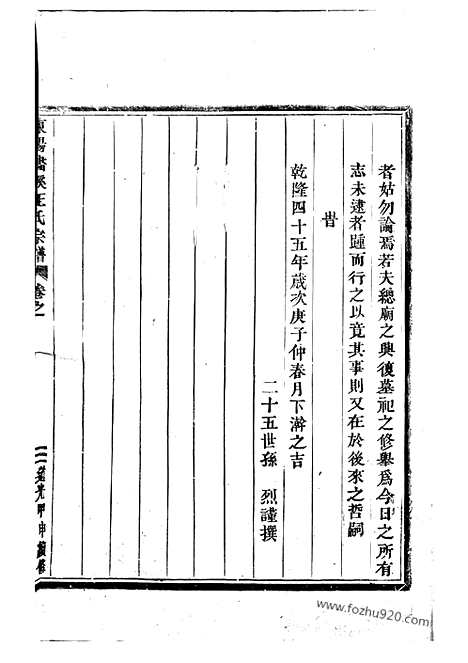 者姑勿論焉若夫總廟之興復墓祀之修舉爲今日之所有
志未逮者踵而行之以竟其事則又在於後來之哲嗣
旹
乾隆四十五年歲次庚子仲春月下澣之吉
二十五世孫 烈謹撰
王氏宗譜 卷之一
道光甲申
www.fozhu920.com